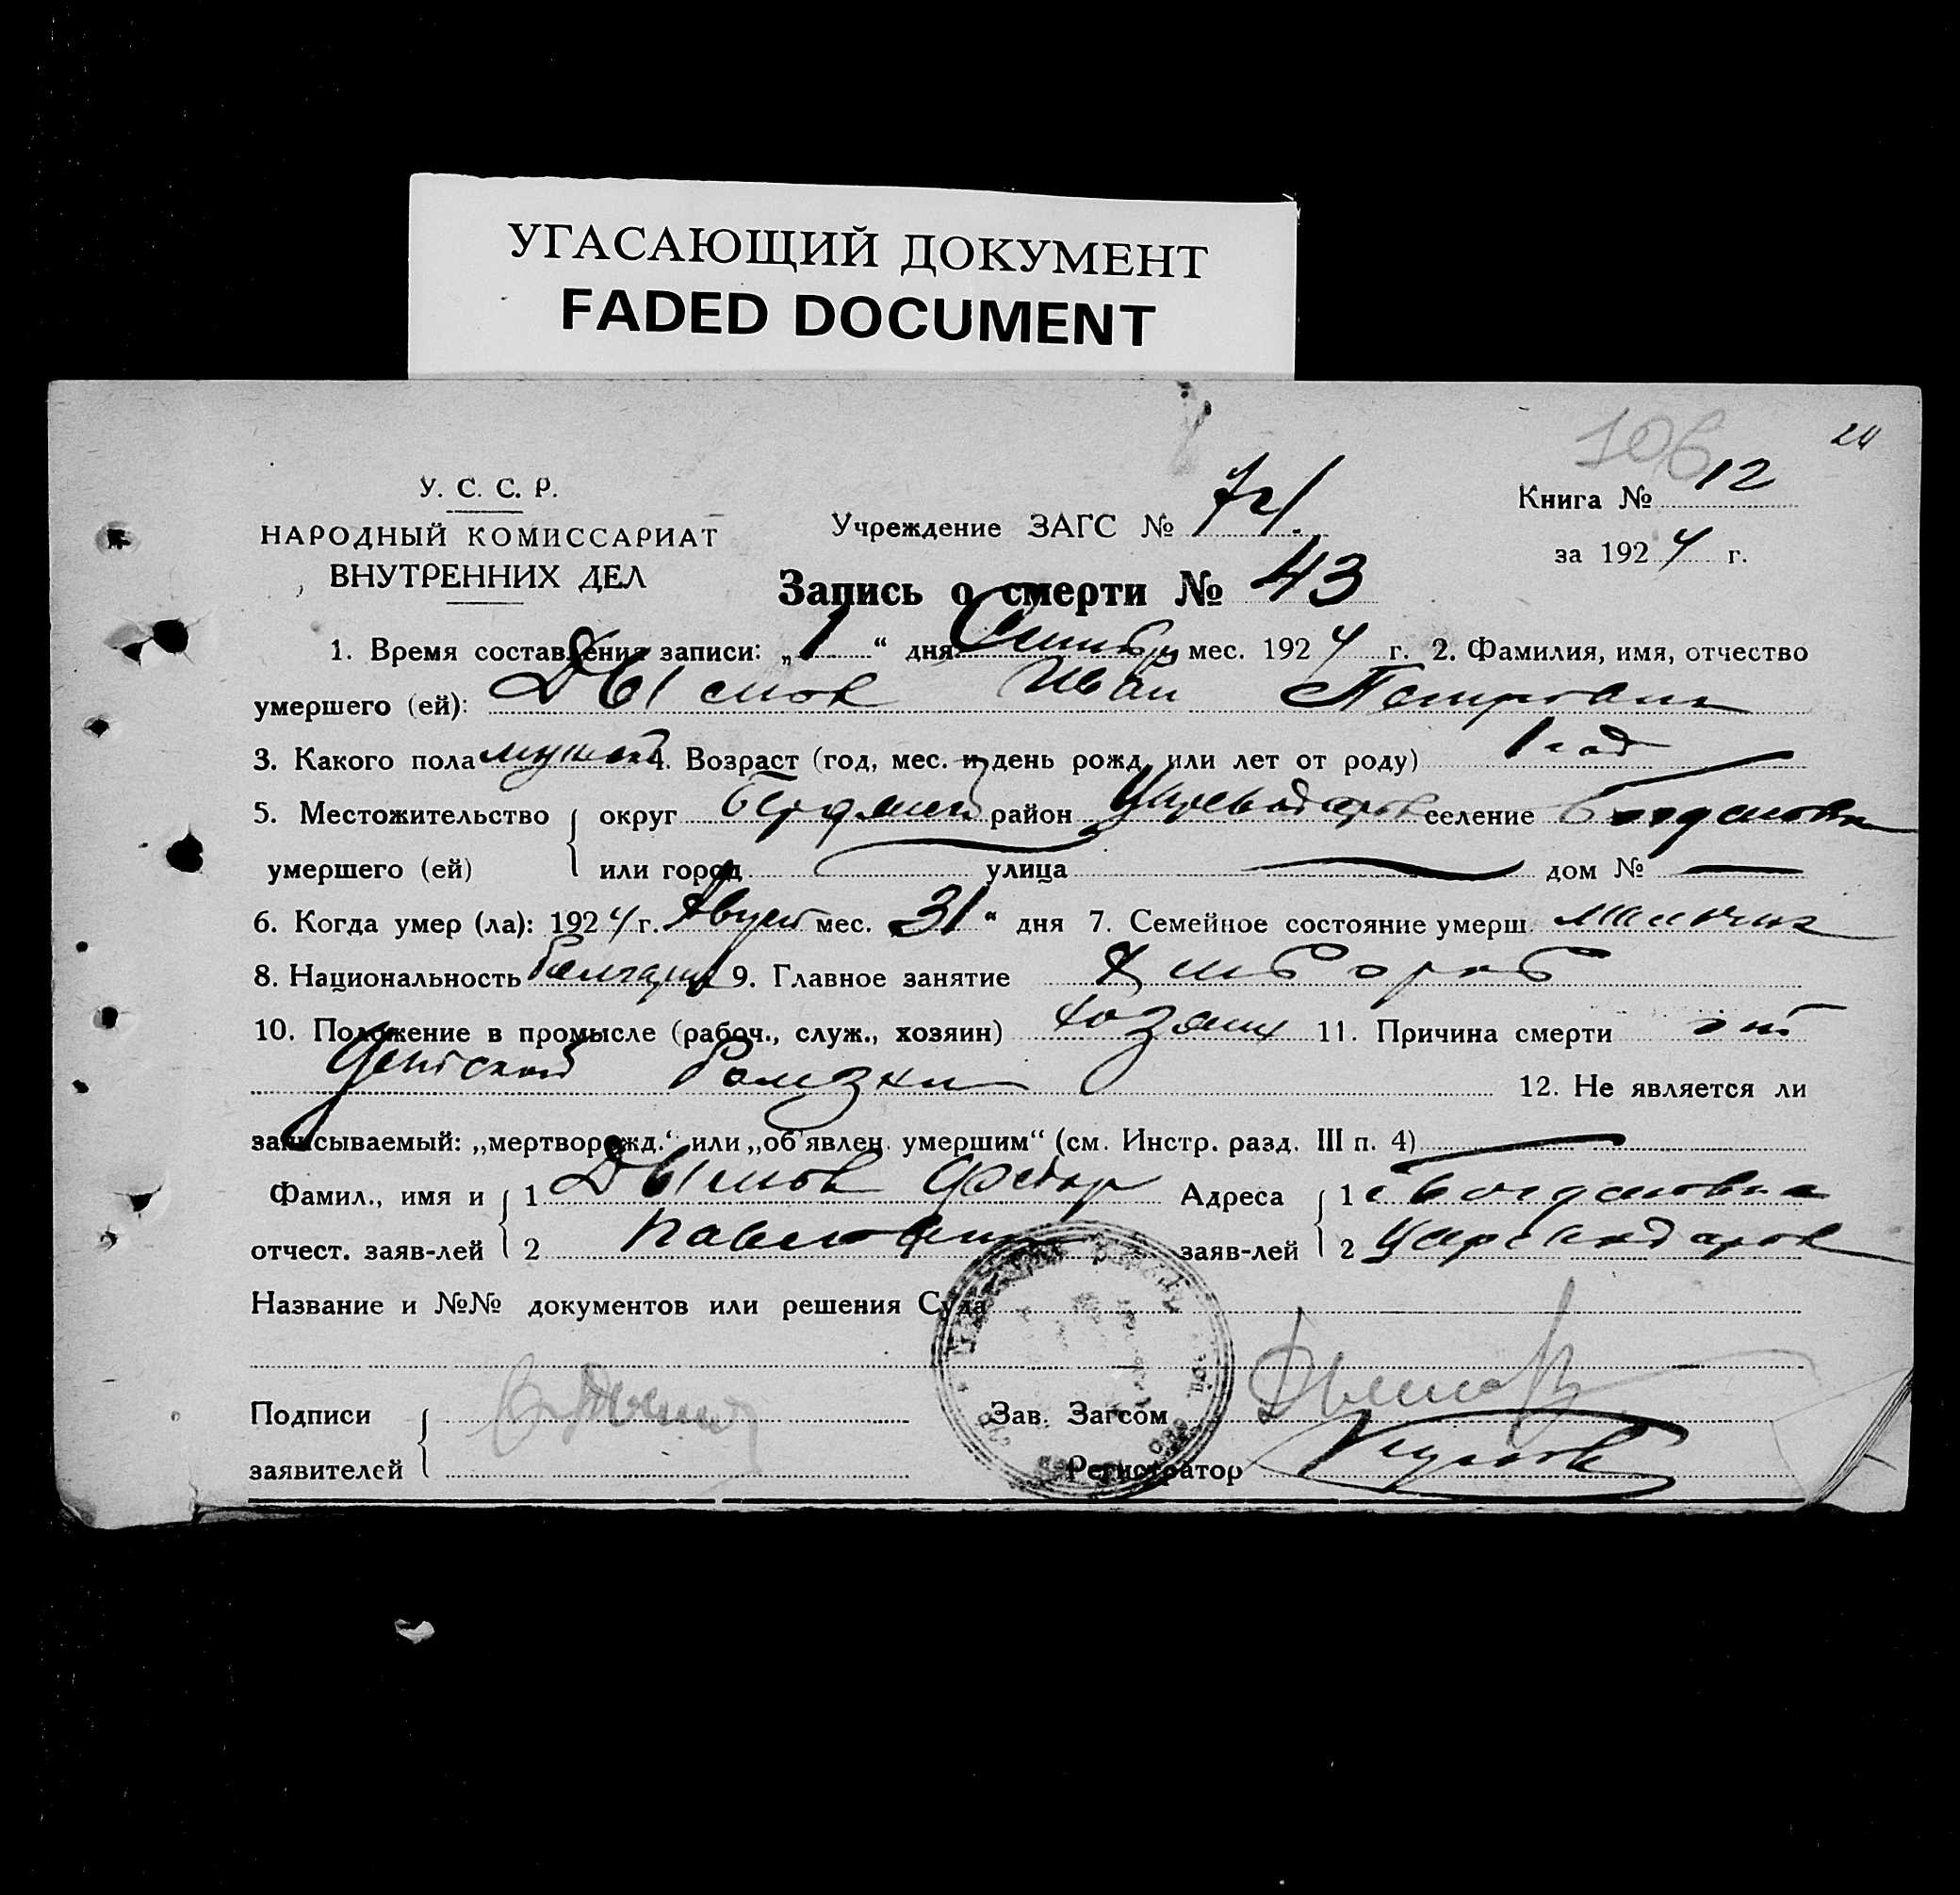 УГАСАЮЩИЙ ДОКУМЕНТ
FADED DOCUMENT
106 24
У. С. С. Р.
НАРОДНЫЙ КОМИССАРИАТ
ВНУТРЕННИХ ДЕЛ
Учреждение ЗАГС №
Книга № 12
за 1924 г.
Запись о смерти № 43
1. Время составления записи: „1“ дня мес. 1924 г. 2. Фамилия, имя, отчество
умершего (ей): Дымов Иван Петрович
3. Какого пола мужской 4. Возраст (год, мес. и день рожд. или лет от роду) 1 год
5. Местожительство округ район селение Богдановка
умершего (ей) или город улица дом № —
6. Когда умер (ла): 1924 г. Август мес. 31“ дня 7. Семейное состояние умерш. мальчик
8. Национальность болгарин 9. Главное занятие хлебороб
10. Положение в промысле (рабоч., служ., хозяин) хозяин 11. Причина смерти от
детской болезни 12. Не является ли
записываемый: „мертворожд.“ или „об'явлен. умершим“ (см. Инстр. разд. III п. 4) —
Фамил., имя и 1 Дымов Федор Адреса 1 с Богдановка
отчест. заяв-лей 2 Павлович заяв-лей 2
Название и №№ документов или решения Суда
Подписи Зав. Загсом
заявителей Регистратор